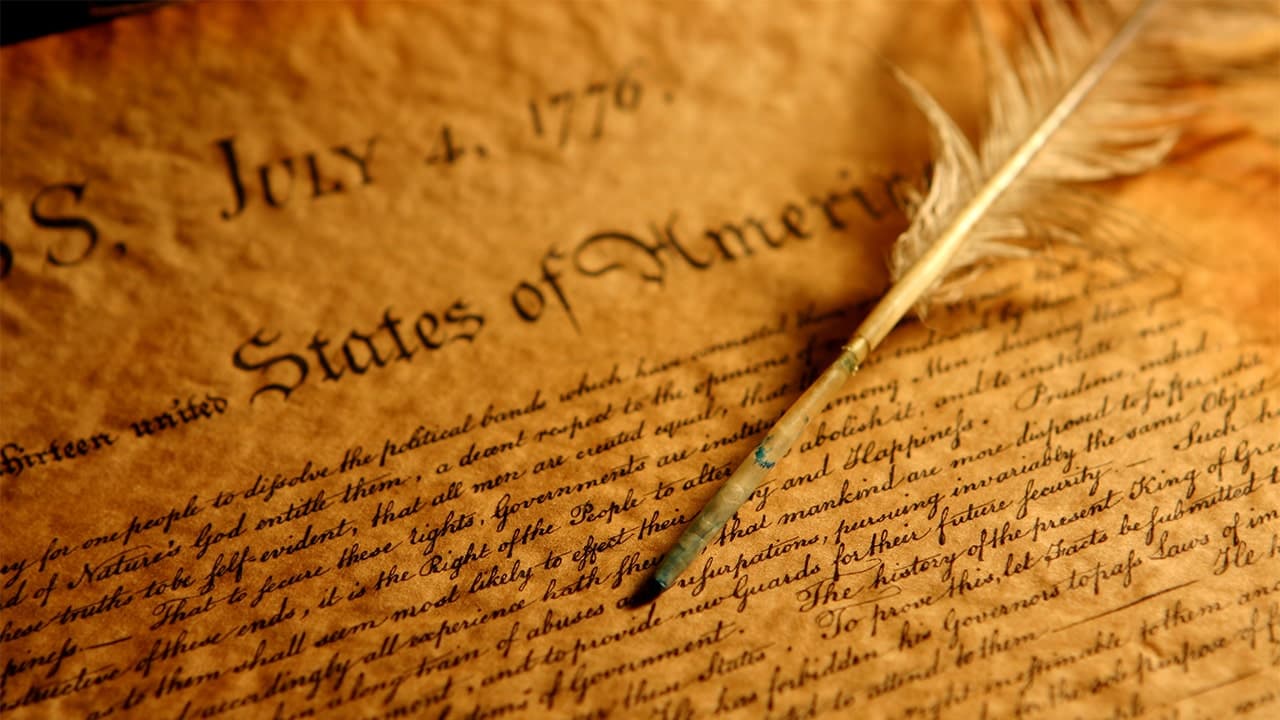 S. July 4, 1776.
hirteen united States of Americ
for one people to dissolve the political bands which have connected them
of Nature's God entitle them, a decent respect to the opinions of
these truths to be self-evident, that all men are created equal, that endowed by their
piness.— That to secure these rights, Governments are institu among Men, deriving their
structive of these ends, it is the Right of the People to alter abolish it, and to institute new
as to them shall seem most likely to effect their ty and Happiness. Prudence, indeed
accordingly all experience hath shew that mankind are more disposed to suffer, whi
a long train of abuses a usurpations, pursuing invariably the same Object
and to provide new Guards for their future security.— Such h
tems of Government. The history of the present King of Gre
these States. To prove this, let Facts be submitted t
He has forbidden his Governors to pass Laws of im
to attend to them.— He h
right inestimable to them an
for the sole purpose of f